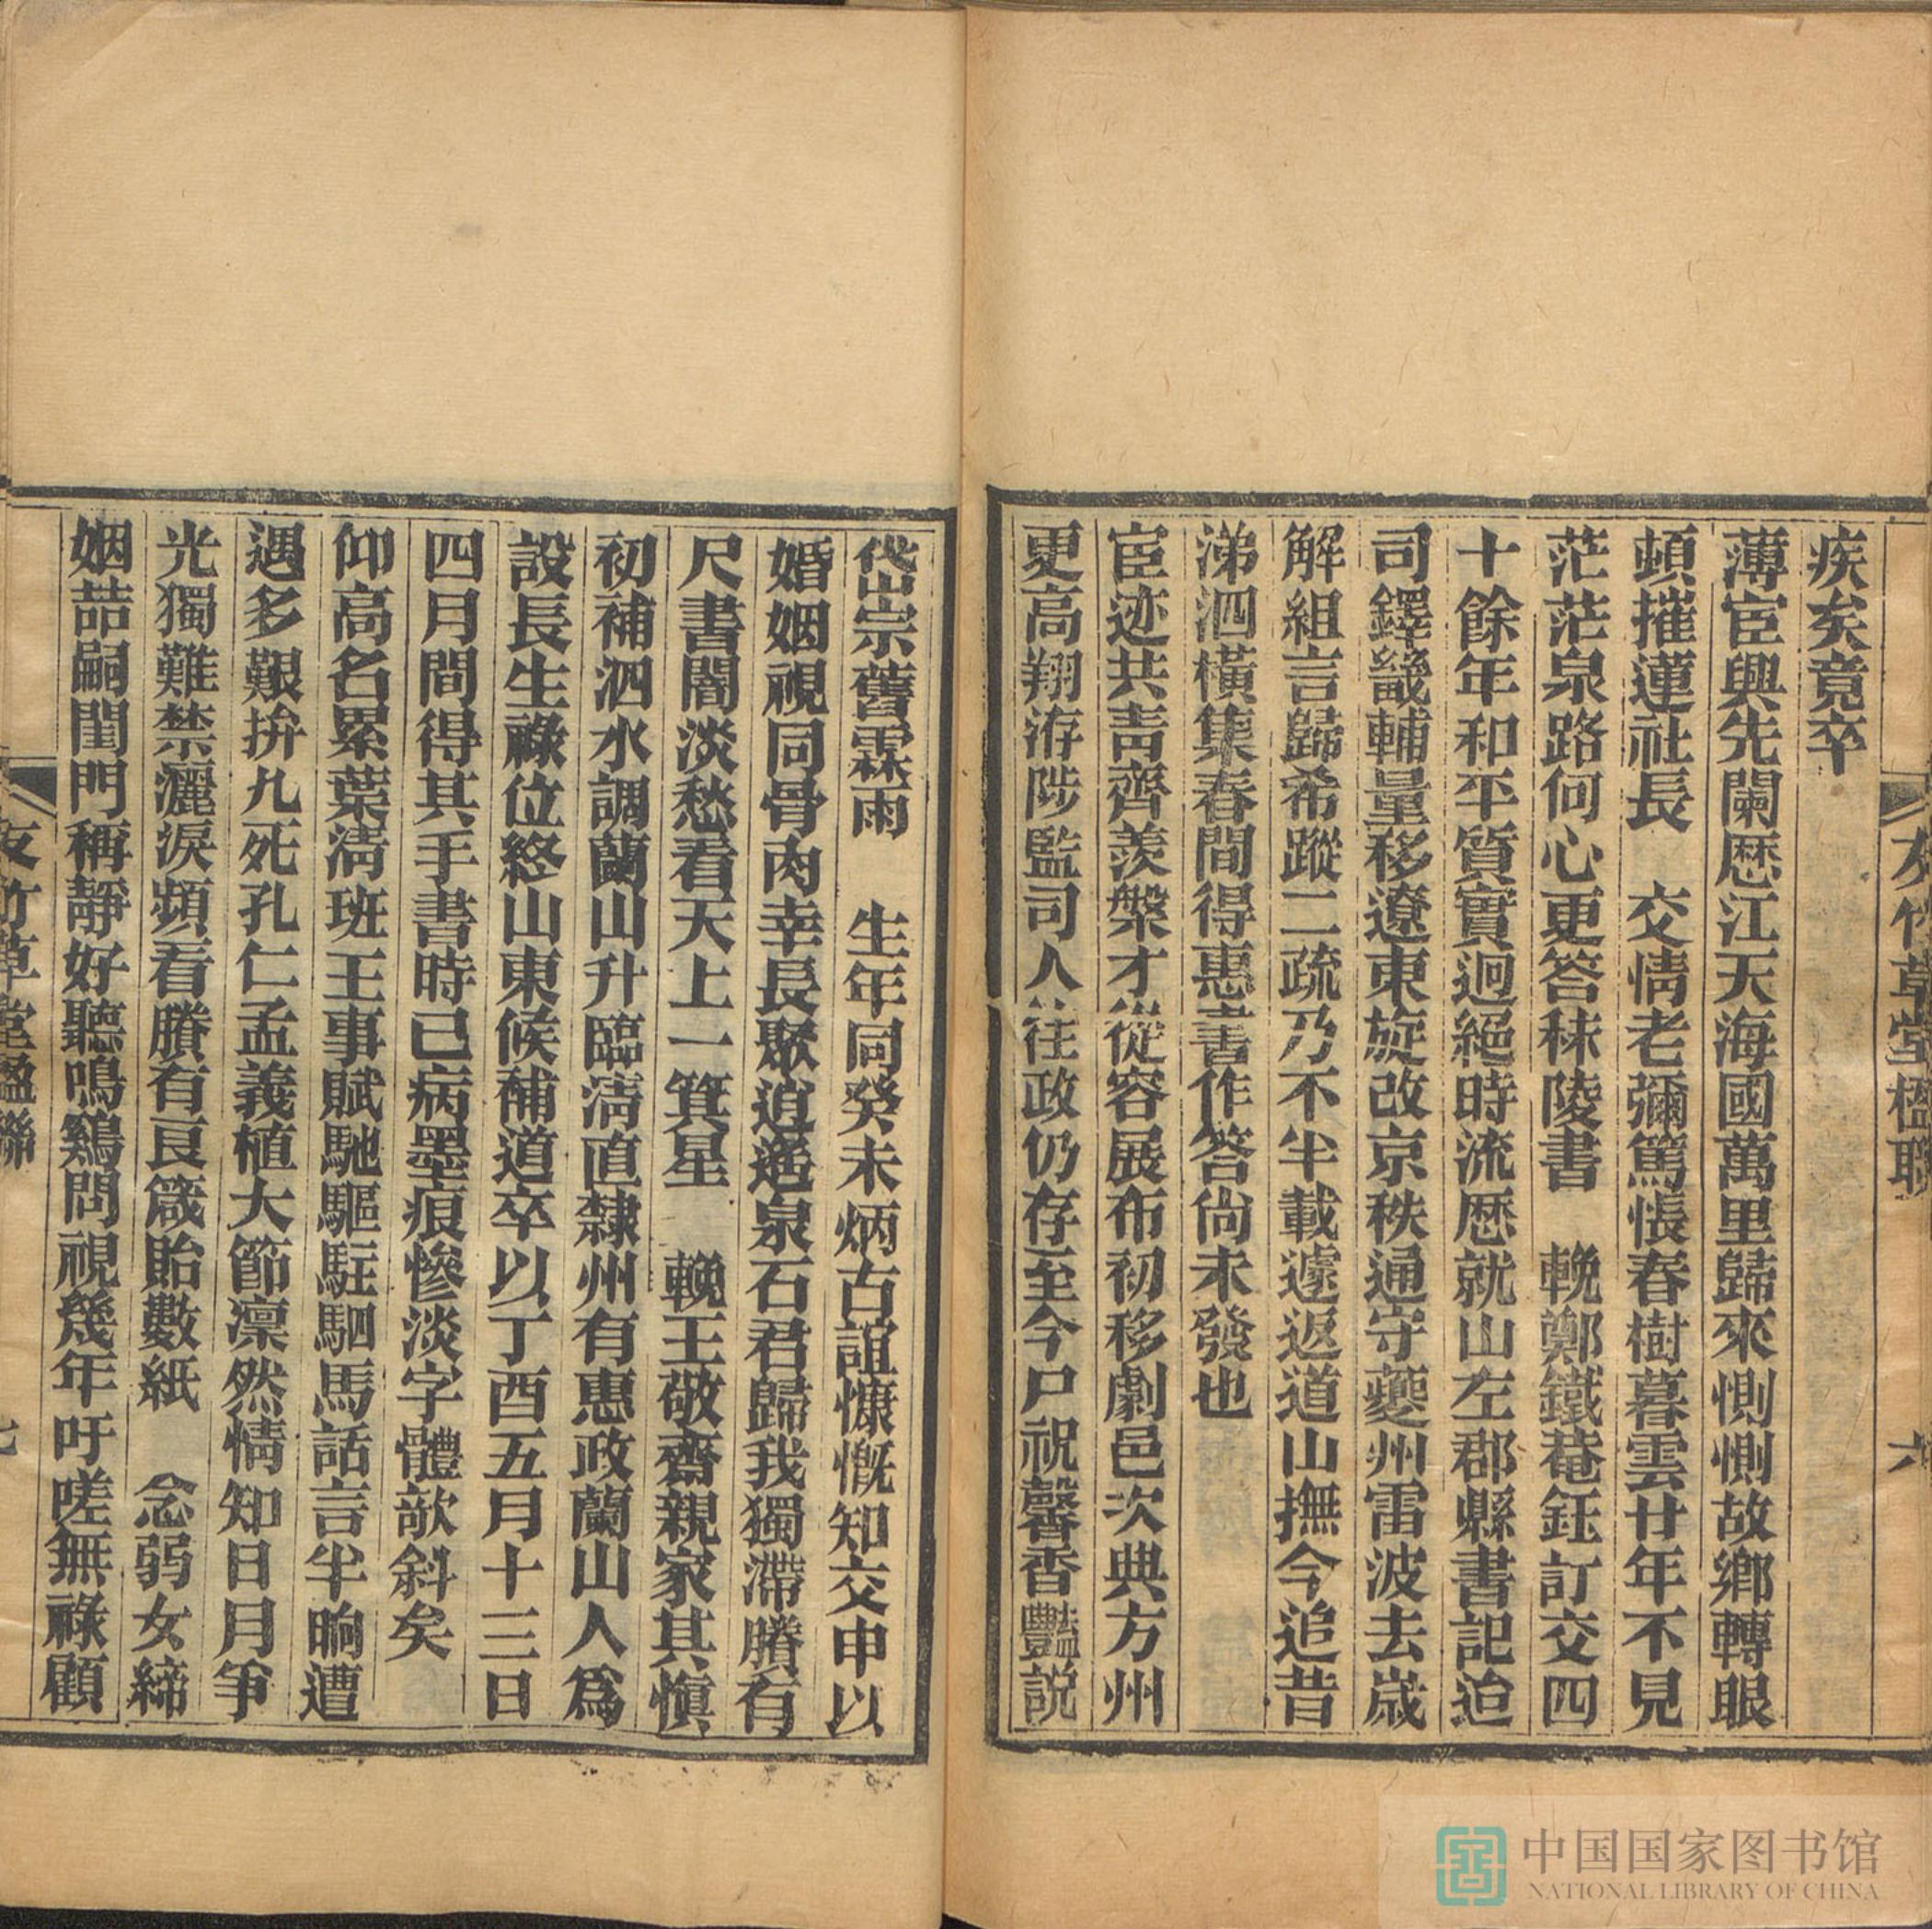 疾矣竟卒
薄宦與先闌歷江天海國萬里歸來惻惻故鄉轉眼
頓摧蓮社長　交情老彌篤悵春樹暮雲廿年不見
茫茫泉路何心更答秣陵書　輓鄭鐵菴鈺訂交四
十餘年和平質實迥絕時流歷就山左郡縣書記迨
司鐸畿輔量移遼東旋改京秩通守夔州雷波去歲
解組言歸希蹤二疏乃不半載遽返道山撫今追昔
涕泗橫集春間得惠書作答尚未發也
宦迹共青齊羨槃才從容展布初移劇邑次典方州
更高翔洊陟監司人往政仍存至今尸祝馨香豔說
岱宗舊霖雨　生年同癸未炳古誼慷慨知交申以
婚姻視同骨肉幸長聚逍遙泉石君歸我獨滯賸有
尺書闇淡愁看天上一箕星　輓王敬齋親家其慎
初補泗水調蘭山升臨清直隸州有惠政蘭山人為
設長生祿位終山東候補道卒以丁酉五月十三日
四月間得其手書時已病墨痕慘淡字體攲斜矣
仰高名累葉清班王事賦馳驅駐駟馬話言半晌遭
遇多艱拚九死孔仁孟義植大節凜然情知日月爭
光獨難禁灑淚頻看賸有良箴貽數紙　念弱女締
姻喆嗣閨門稱靜好聽鳴雞問視幾年吁嗟無祿顧
友竹草堂楹聯
六
友竹草堂楹聯
七
中国国家图书馆
NATIONAL LIBRARY OF CHINA